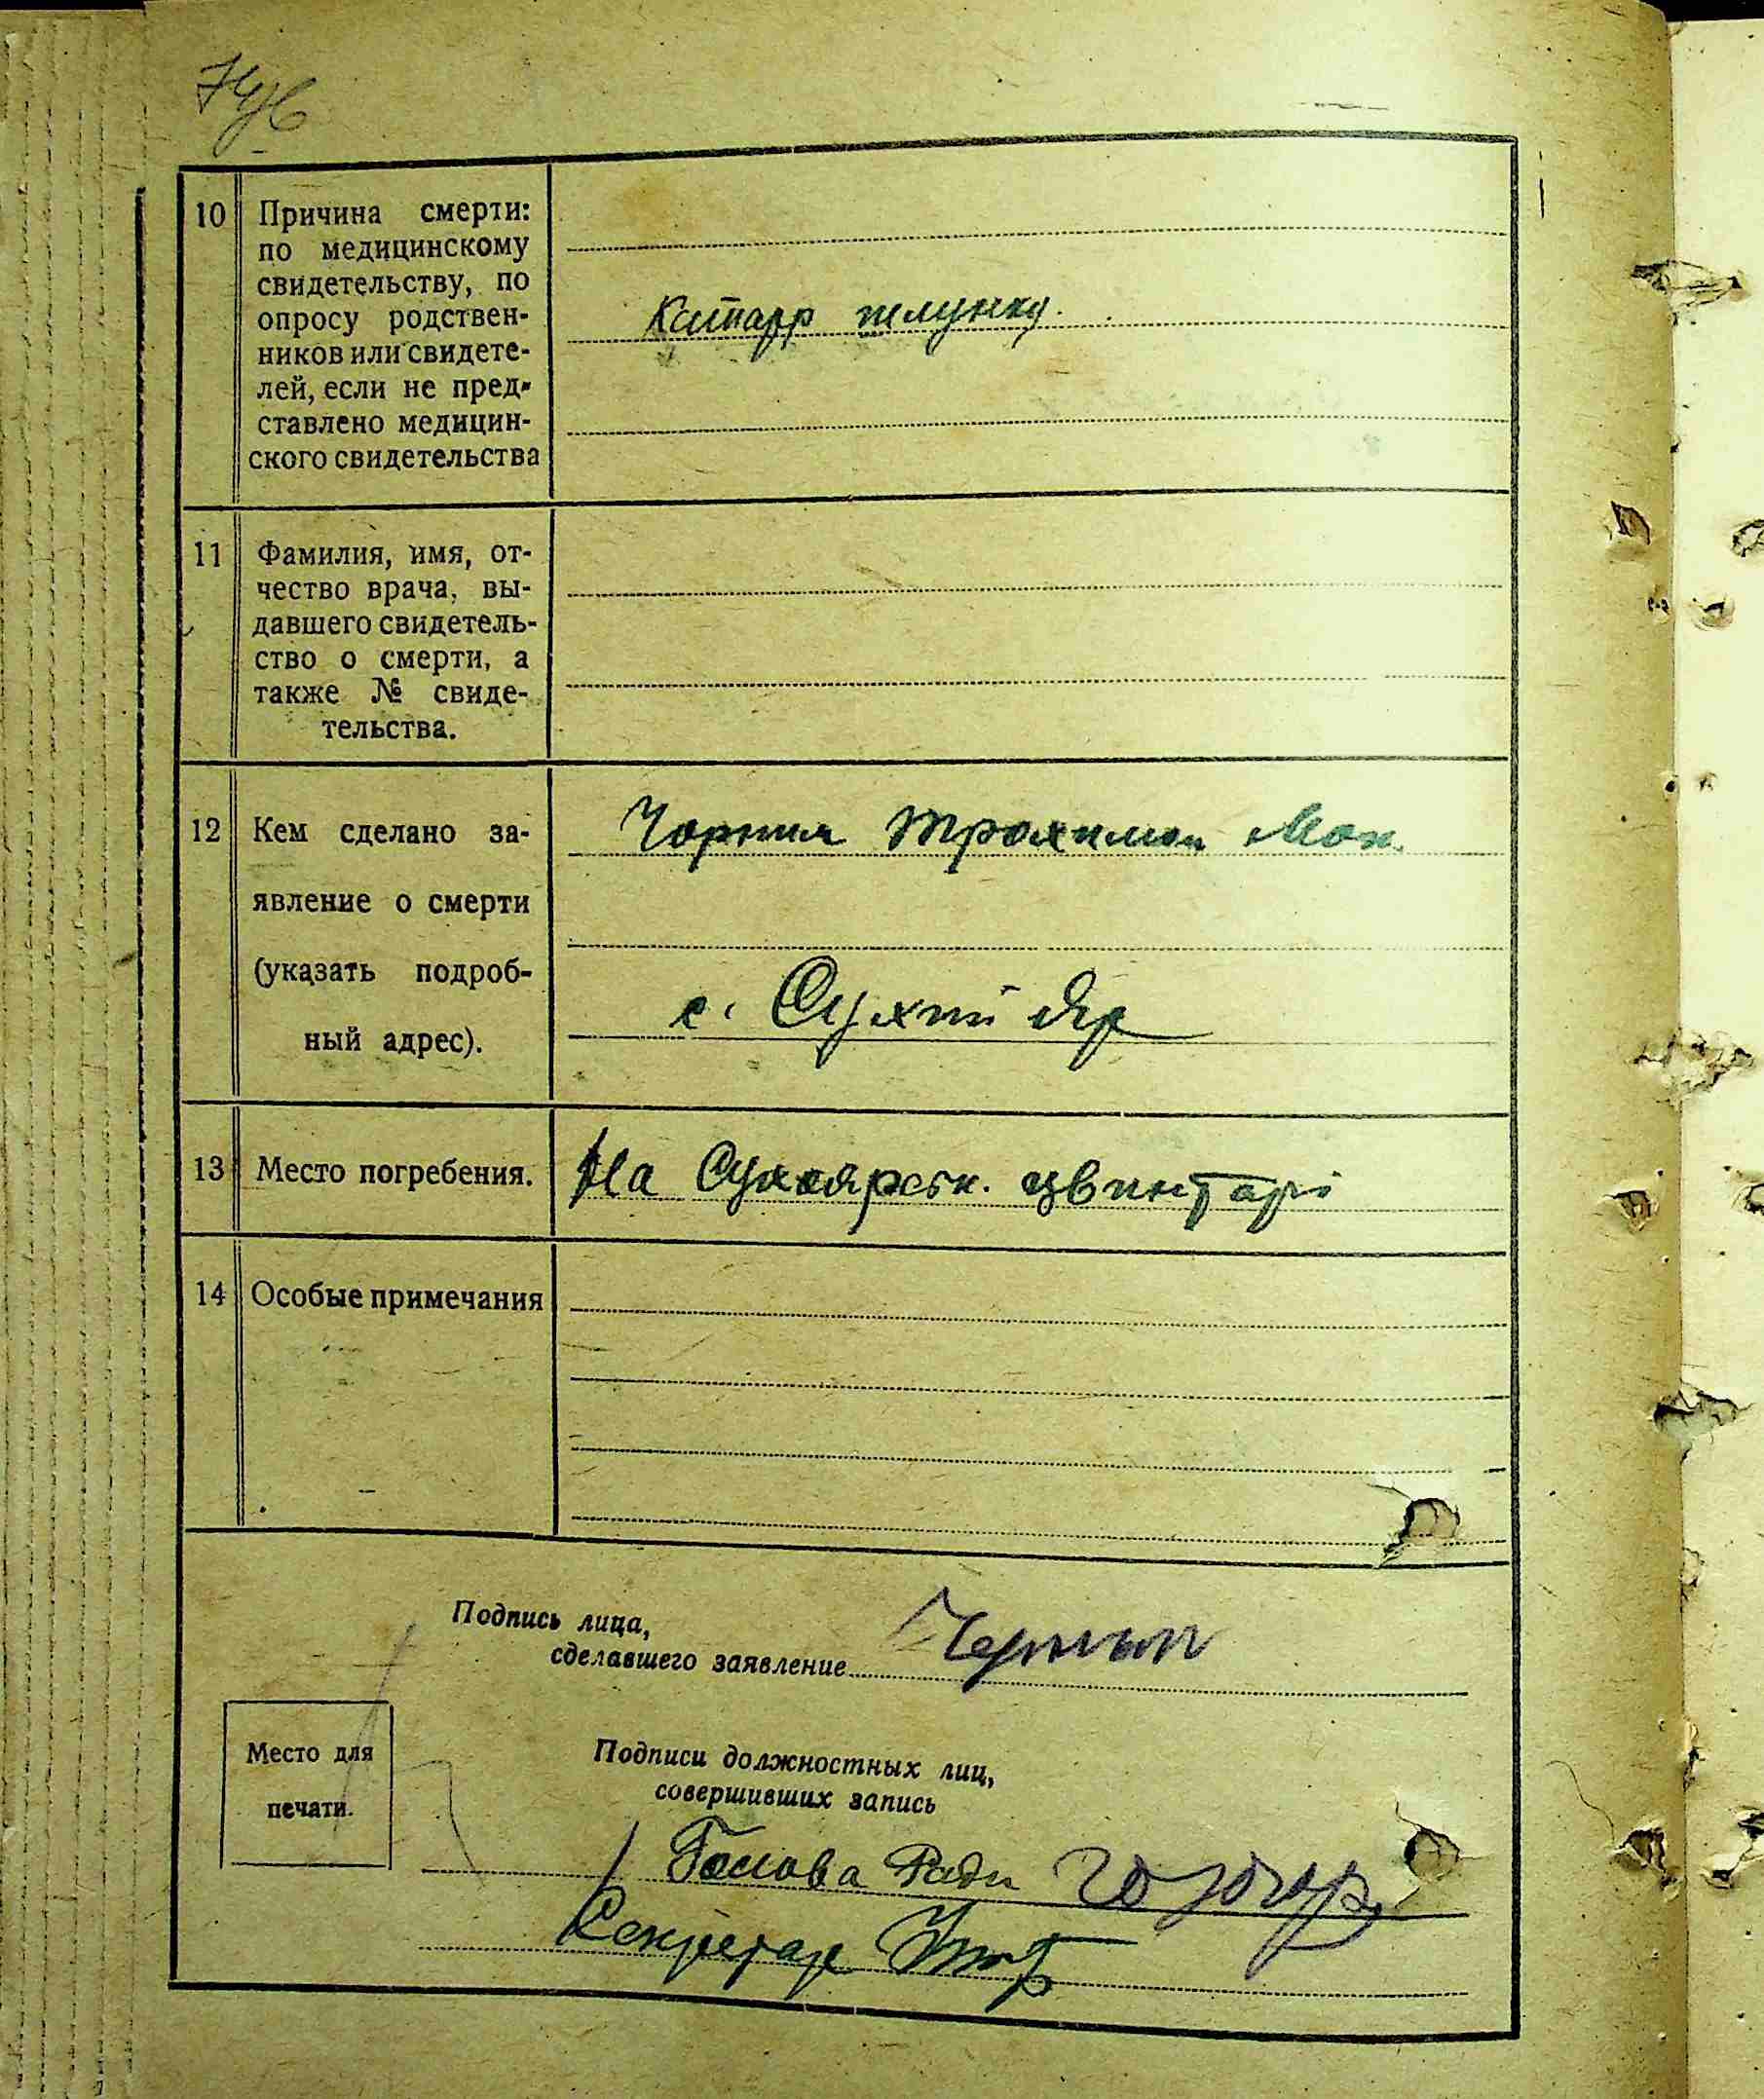 10 Причина смерти:
по медицинскому
свидетельству, по
опросу родствен-
ников или свидете-
лей, если не пред-
ставлено медицин-
ского свидетельства
Катарр шлунку.
11 Фамилия, имя, от-
чество врача, вы-
давшего свидетель-
ство о смерти, а
также № свиде-
тельства.
12 Кем сделано за-
явление о смерти
(указать подроб-
ный адрес).
Чорним Трохимом Мок.
с. Сухий Яр
13 Место погребения.
На Сухоярськ. цвинтарі
14 Особые примечания
Подпись лица,
сделавшего заявление
Место для
печати.
Подписи должностных лиц,
совершивших запись
Голова Ради
Секретар